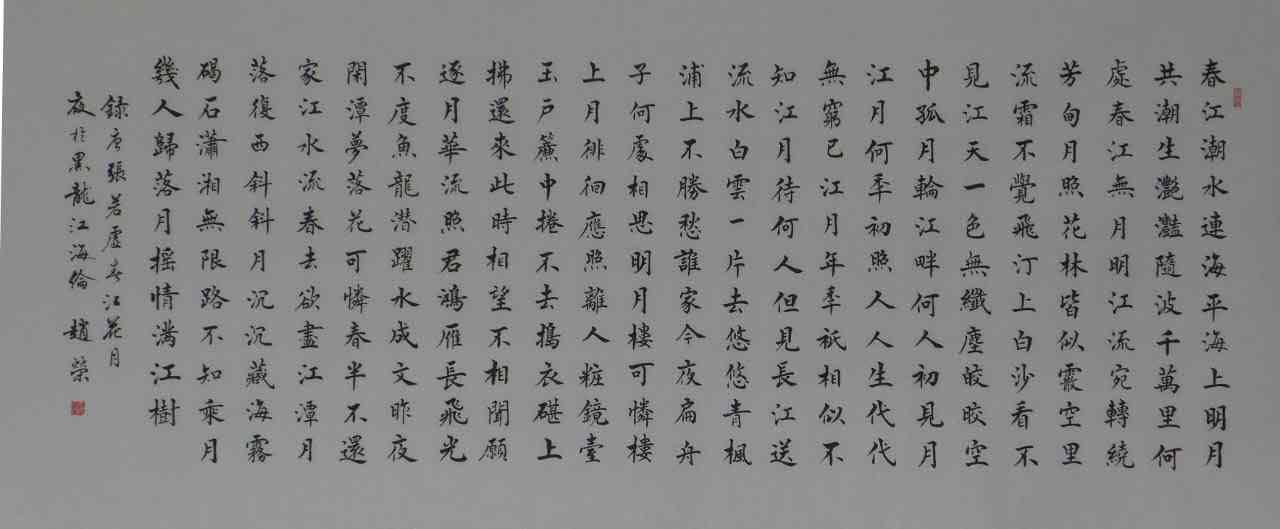 春江潮水連海平海上明月
共潮生灔灩隨波千萬里何
處春江無月明江流宛轉繞
芳甸月照花林皆似霰空里
流霜不覺飛汀上白沙看不
見江天一色無纖塵皎皎空
中孤月輪江畔何人初見月
江月何年初照人人生代代
無窮已江月年年衹相似不
知江月待何人但見長江送
流水白雲一片去悠悠青楓
浦上不勝愁誰家今夜扁舟
子何處相思明月樓可憐樓
上月徘徊應照離人粧鏡臺
玉戶簾中捲不去搗衣碪上
拂還來此時相望不相聞願
逐月華流照君鴻雁長飛光
不度魚龍潛躍水成文昨夜
閑潭夢落花可憐春半不還
家江水流春去欲盡江潭月
落復西斜斜月沉沉藏海霧
碣石瀟湘無限路不知乘月
幾人歸落月搖情滿江樹
錄唐張若虛春江花月
夜於黑龍江海倫 趙榮